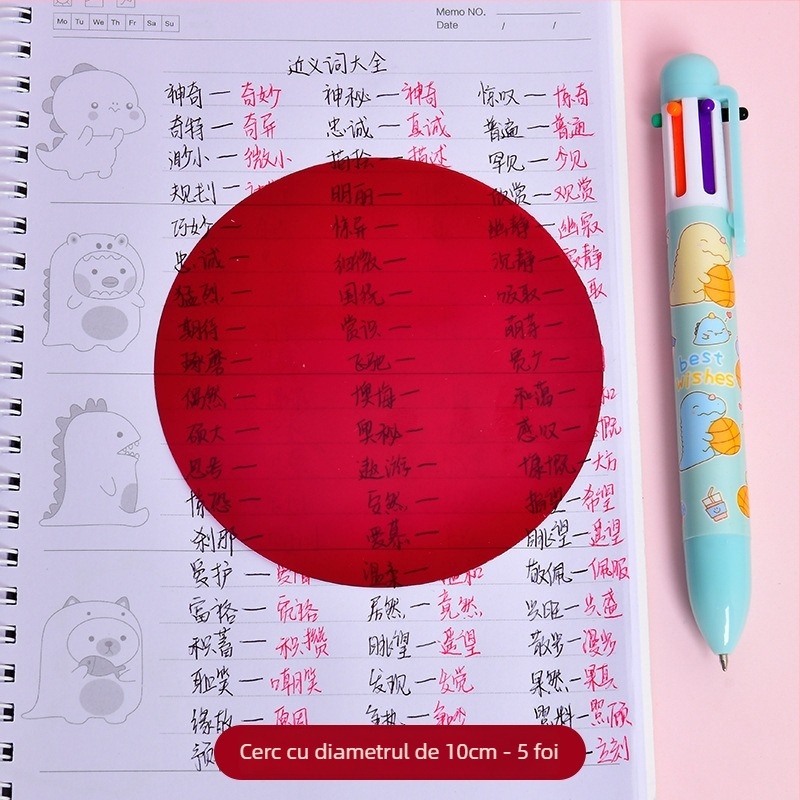 Memo NO.
Mo Tu We Th Fr Sa Su
Date / /
近义词大全
神奇—奇妙 神秘—神奇 惊叹—惊奇
奇特—奇异 忠诚—真诚 普遍—普通
渺小—微小 描绘—描述 罕见—少见
规划— 明丽— 欣赏—观赏
巧妙— 惊异— 幽静—幽寂
忠诚— 细微— 沉静—寂静
猛烈— 国税— 吸取—取
期待— 赏识— 萌芽—
琢磨— 飞驰— 宽广—
偶然— 懊悔— 和蔼—和
硕大— 奥秘— 感叹—慨
思考— 遨游— 慷慨—大方
惊恐— 忽然— 指望—希望
刹那— 爱慕— 眺望—遥望
爱护— 温柔—温和 敬佩—佩服
富裕—宽裕 居然—竟然 兴旺—兴盛
积蓄—积攒 眺望—遥望 散步—漫步
耻笑—嘲笑 发现—发觉 果然—果真
缘故—原因 争执—争吵 照料—照顾
预 —立刻
best
wishes
Cerc cu diametrul de 10cm - 5 foi